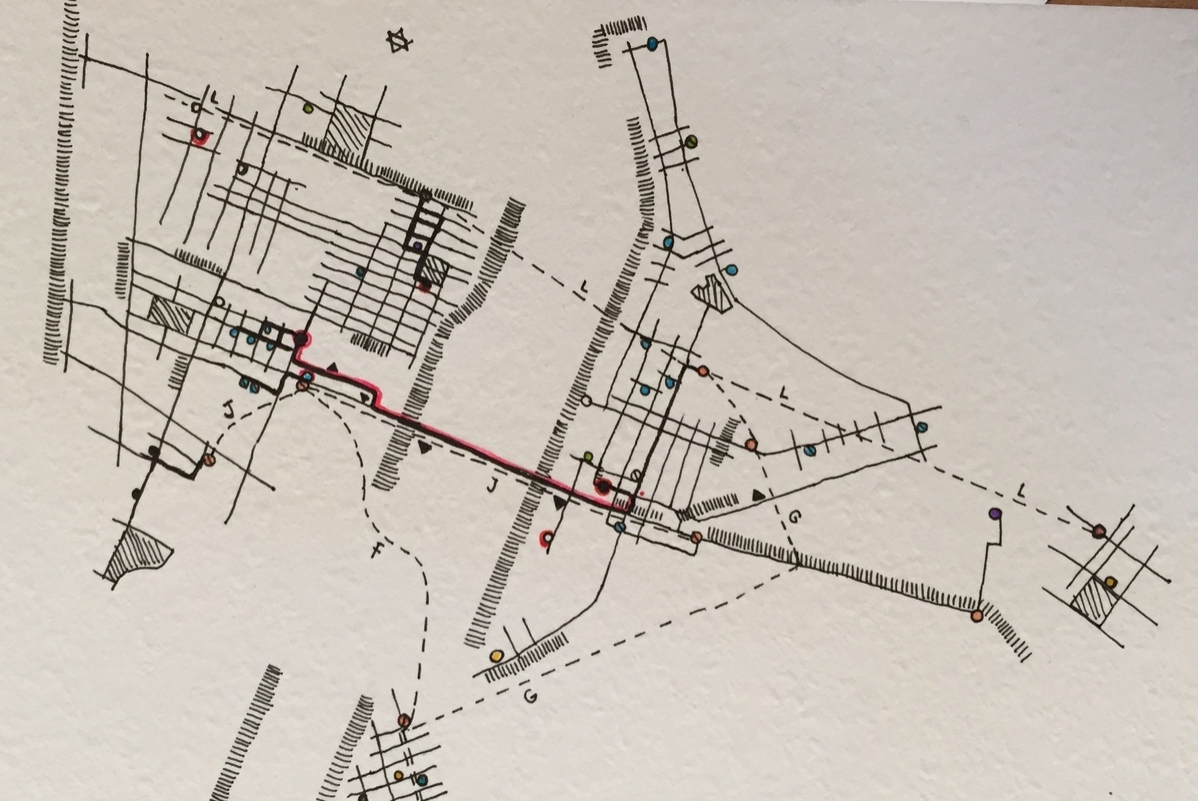 L
L
L
L
J
J
F
G
G